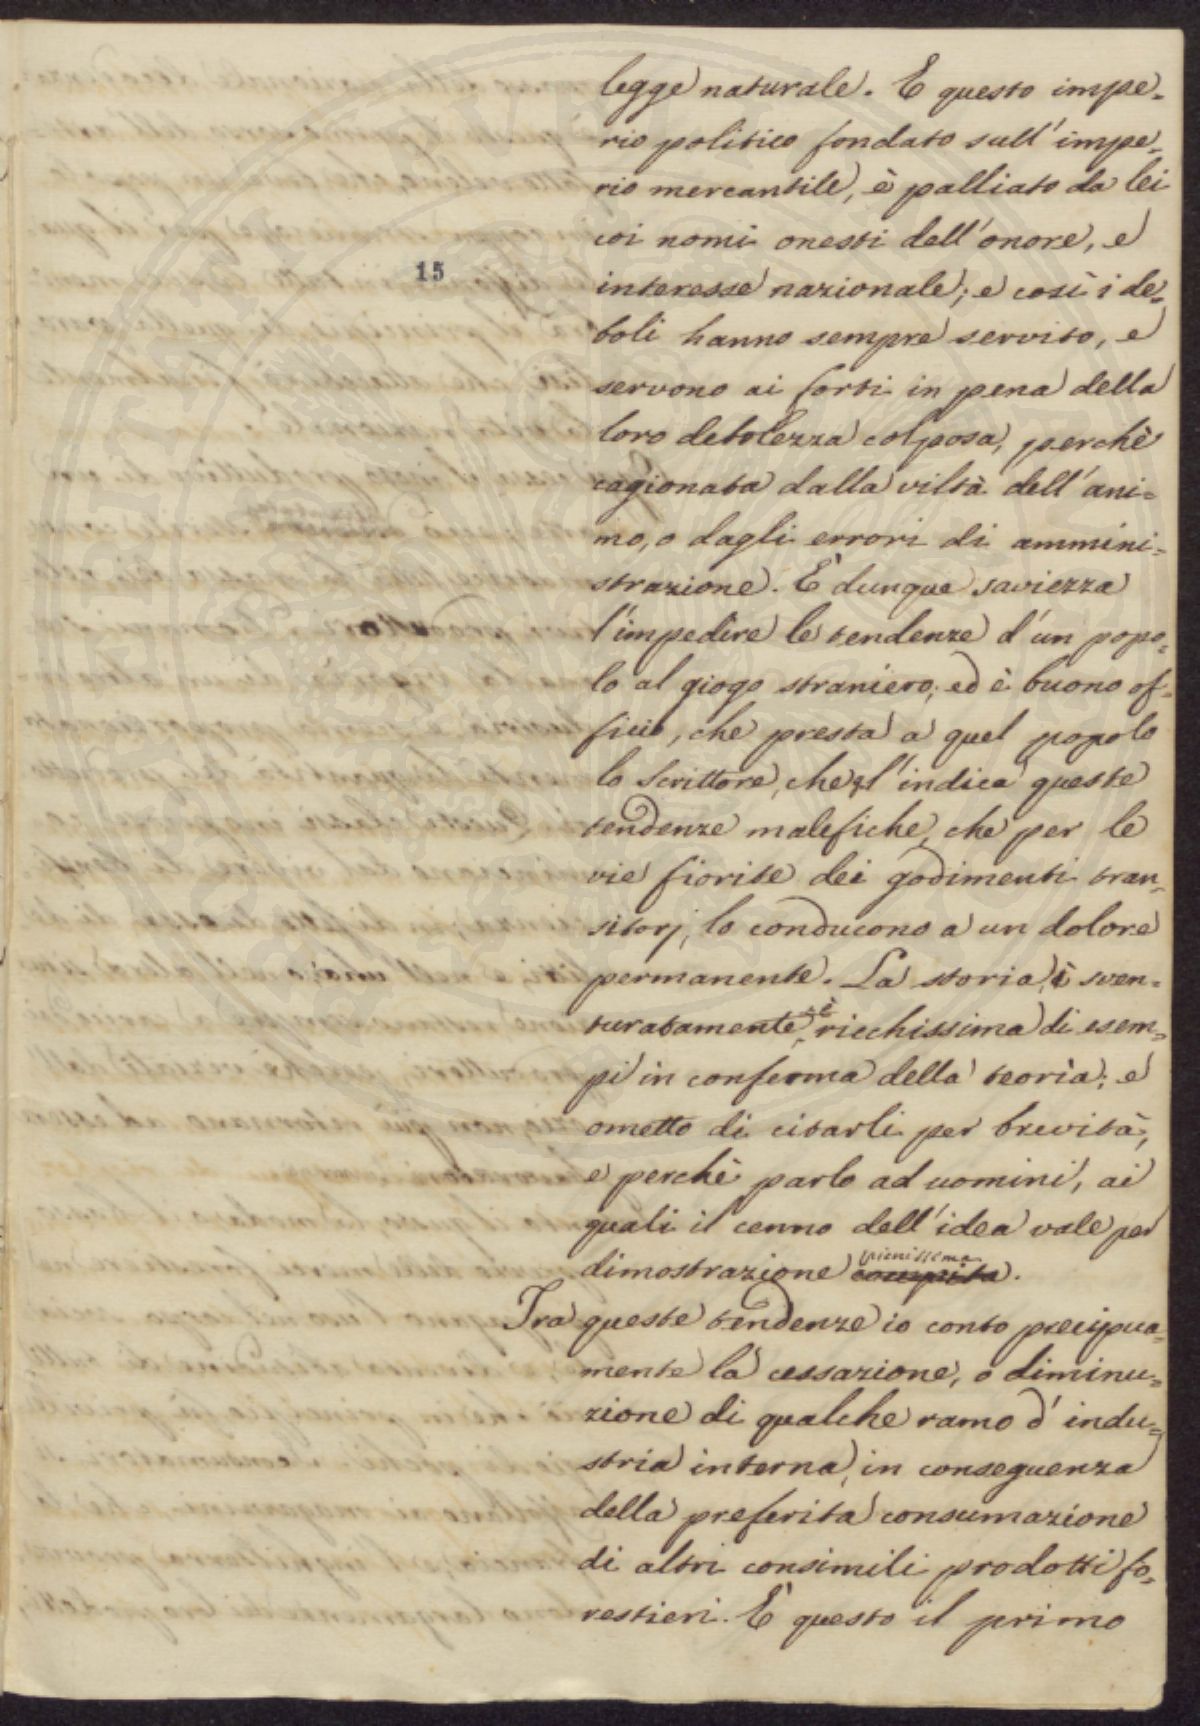 legge naturale. E questo impe-
rio politico fondato sull'impe-
rio mercantile, è palliato da lei
coi nomi onesti dell'onore, e
15
interesse nazionale; e così i de-
boli hanno sempre servito, e
servono ai forti in pena della
loro debolezza colposa, perchè
cagionata dalla viltà dell'ani=
mo, o dagli errori di ammini=
strazione. È dunque saviezza
l'impedire le tendenze d'un popo=
lo al giogo straniero; ed è buono of=
ficio, che presta a quel popolo
lo Scrittore, che l'indica queste
tendenze malefiche, che per le
vie fiorite dei godimenti tran=
sitorj, lo conducono a un dolore
permanente. La storia, è sven=
turatamente, è ricchissima di esem=
pi in conferma della teoria; e
ometto di citarli per brevità,
e perchè parlo ad uomini, ai
quali il cenno dell'idea vale per
pienissima
dimostrazione compita.
Tra queste tendenze io conto precipua=
mente la cessazione, o diminu=
zione di qualche ramo d'indu=
stria interna, in conseguenza
della preferita consumazione
di altri consimili prodotti fo=
restieri. È questo il primo